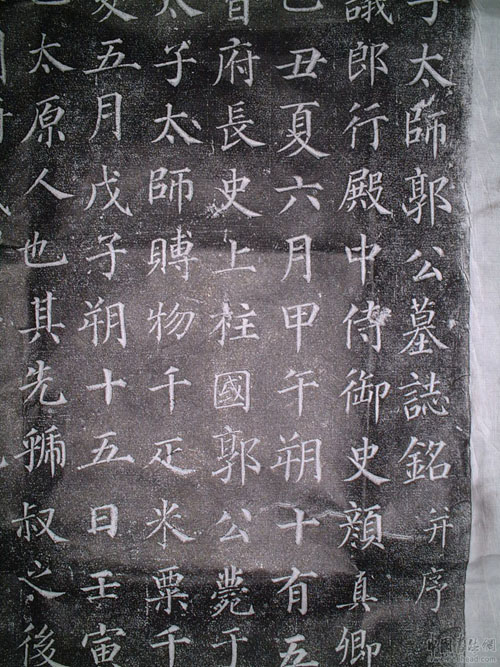 子太師郭公墓誌銘并序
議郎行殿中侍御史顏真卿
己丑夏六月甲午朔十有五
督府長史上柱國郭公薨于
太子太師賻物千疋米粟千
夏五月戊子朔十五日壬寅
太原人也其先虢叔之後